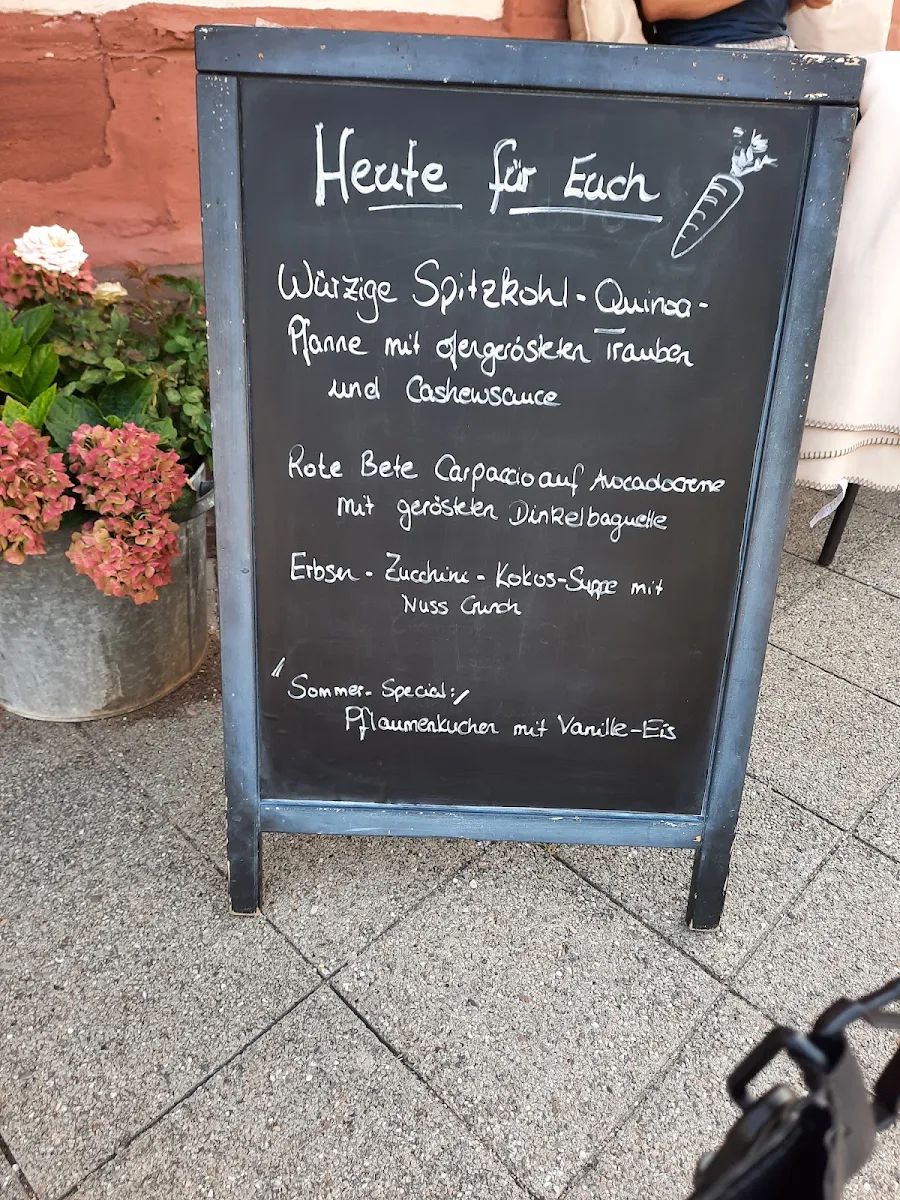 Heute für Euch
Würzige Spitzkohl-Quinoa-
Pfanne mit ofengerösteten Trauben
und Cashewsauce
Rote Bete Carpaccio auf Avocadocreme
mit gerösteten Dinkelbaguette
Erbsen-Zucchini-Kokos-Suppe mit
Nuss Crunch
"Sommer-Special:"
Pflaumenkuchen mit Vanille-Eis